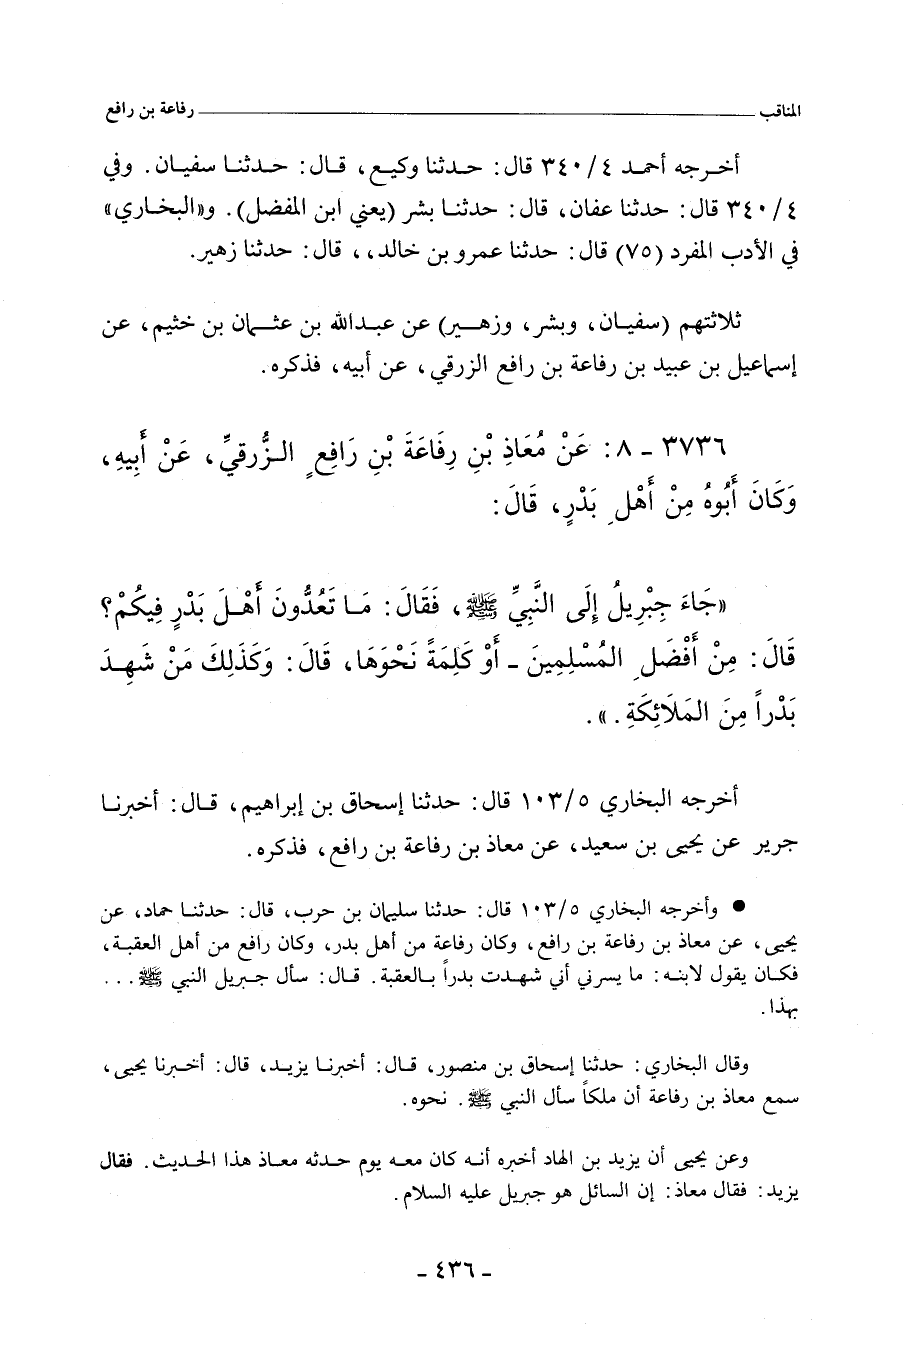 المناقب ــــــــــــــــــــــــــــــــ رفاعة بن رافع
أخرجه أحمد ٤/٣٤٠ قال: حدثنا وكيع، قال: حدثنا سفيان. وفي
٤/٣٤٠ قال: حدثنا عفان، قال: حدثنا بشر (يعني ابن المفضل). و«البخاري»
في الأدب المفرد (٧٥) قال: حدثنا عمرو بن خالد،، قال: حدثنا زهير.
ثلاثتهم (سفيان، وبشر، وزهير) عن عبدالله بن عثمان بن خثيم، عن
إسماعيل بن عبيد بن رفاعة بن رافع الزرقي، عن أبيه، فذكره.
٣٧٣٦ - ٨: عَنْ مُعَاذِ بْنِ رِفَاعَةَ بْنِ رَافِعٍ الزُّرَقيِّ، عَنْ أَبِيهِ،
وَكَانَ أَبُوهُ مِنْ أَهْلِ بَدْرٍ، قَالَ:
«جَاءَ جِبْرِيلُ إِلَى النَّبِيِّ ﷺ، فَقَالَ: مَا تَعُدُّونَ أَهْلَ بَدْرٍ فِيكُمْ؟
قَالَ: مِنْ أَفْضَلِ المُسْلِمِينَ - أَوْ كَلِمَةً نَحْوَهَا، قَالَ: وَكَذَلِكَ مَنْ شَهِدَ
بَدْراً مِنَ المَلَائِكَةِ.».
أخرجه البخاري ٥/١٠٣ قال: حدثنا إسحاق بن إبراهيم، قال: أخبرنا
جرير عن يحيى بن سعيد، عن معاذ بن رفاعة بن رافع، فذكره.
● وأخرجه البخاري ٥/١٠٣ قال: حدثنا سليمان بن حرب، قال: حدثنا حماد، عن
يحيى، عن معاذ بن رفاعة بن رافع، وكان رفاعة من أهل بدر، وكان رافع من أهل العقبة،
فكان يقول لابنه: ما يسرني أني شهدت بدراً بالعقبة. قال: سأل جبريل النبي ﷺ...
بهذا.
وقال البخاري: حدثنا إسحاق بن منصور، قال: أخبرنا يزيد، قال: أخبرنا يحيى،
سمع معاذ بن رفاعة أن ملكاً سأل النبي ﷺ. نحوه.
وعن يحيى أن يزيد بن الهاد أخبره أنه كان معه يوم حدثه معاذ هذا الحديث. فقال
يزيد: فقال معاذ: إن السائل هو جبريل عليه السلام.
- ٤٣٦ -